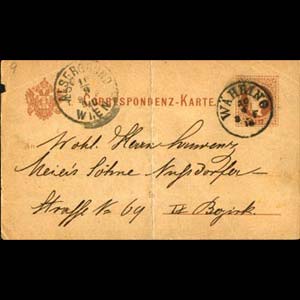 ALSERGRUND
WIEN
CORRESPONDENZ-KARTE.
WÄHRING
An
Wohl. Herrn
Meier's Söhne Nußdorfer
Straße No 69 IX Bezirk.